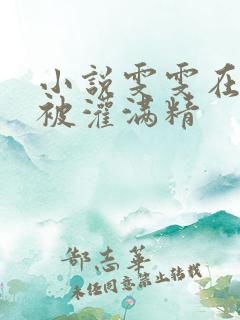 小说雯雯在
被灌满精
郜志华
未经同意禁止转载